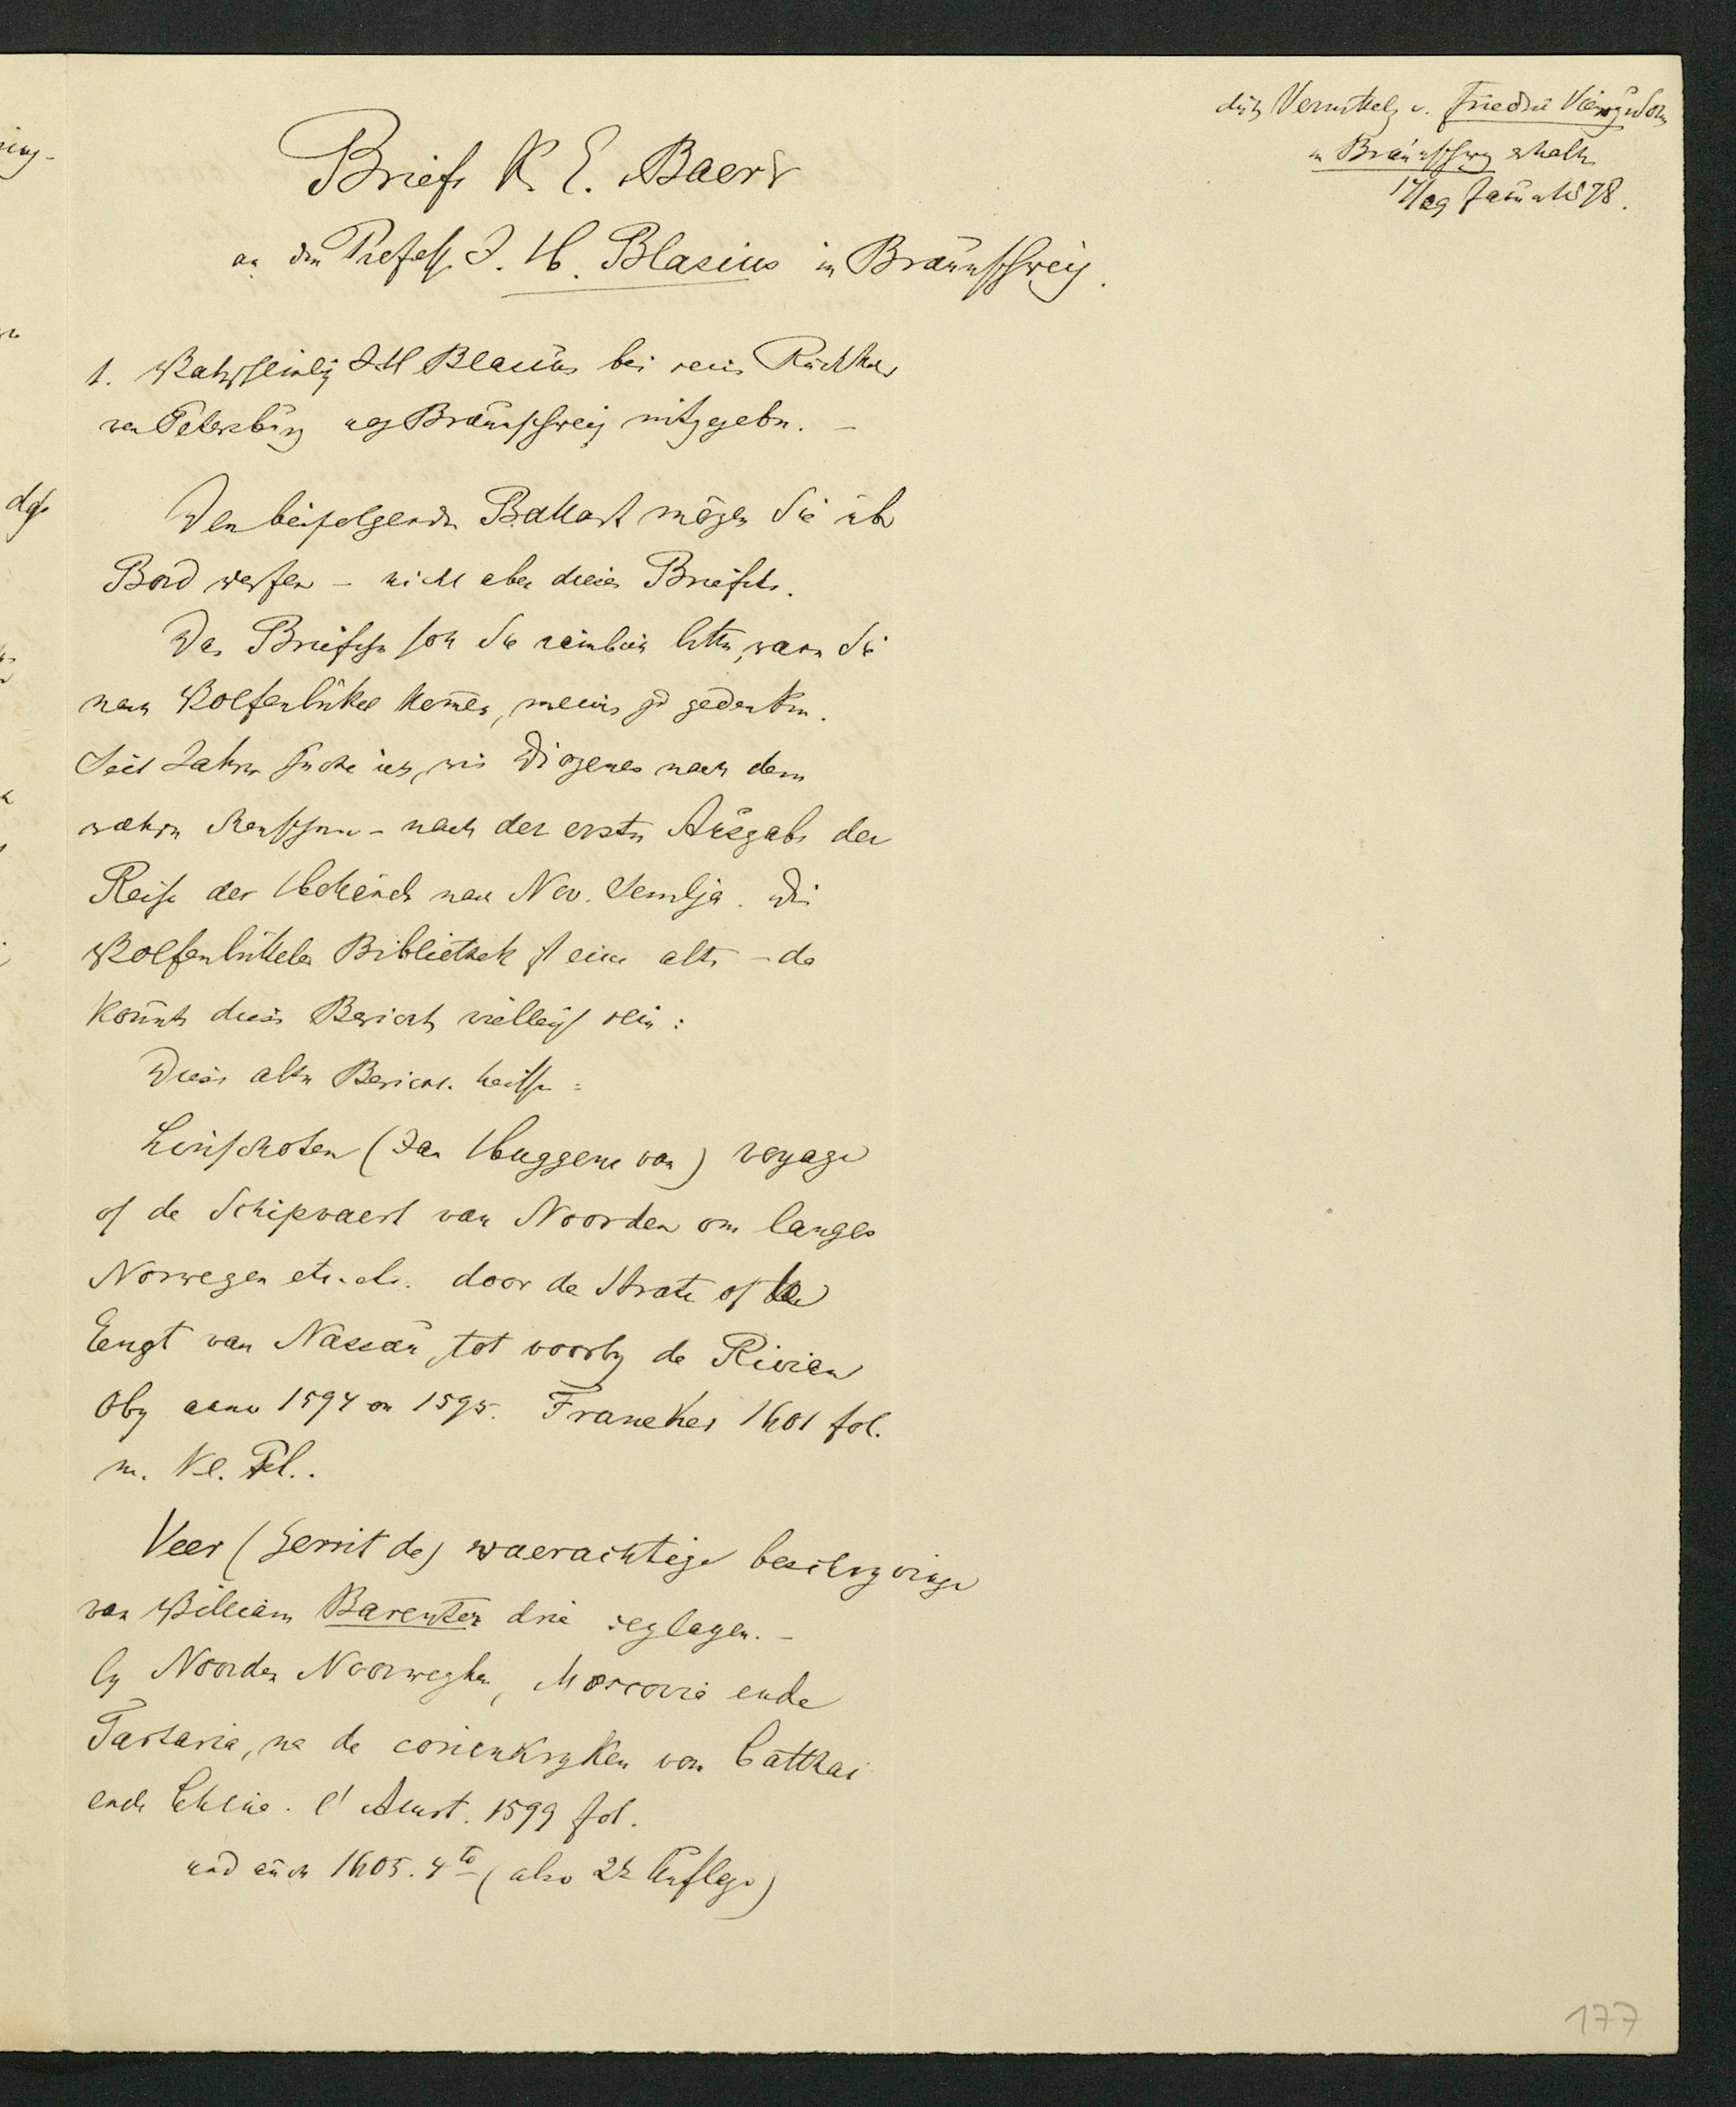 durch Vermittelg v. Friedrich Vieweg u Sohn
in Braunschweig erhalten
17/29 Januar 1878.
Briefe K. E. Baer's
an den Profess. J. H. Blasius in Braunschweig.
1. Wahrscheinlich J H Blasius bei seiner Rückkehr
von Petersburg nach Braunschweig mitgegeben. –
Den beifolgenden Ballast mögen Sie über
Bord werfen – nicht aber dieses Briefchen.
Das Briefchen soll Sie bitten, wann Sie
nach Wolfenbüttel kommen, meiner zu gedenken.
Seit Jahren suche ich, wie Diogenes nach dem
wahren Menschen – nach der ersten Ausgabe der
Reise der Holländer nach Nov. Semlja. Die
Wolfenbütteler Bibliothek ist eine alte – da
könnte dieser Bericht vielleicht sein:
Diese alten Berichte heissen:
Linschoten (Jan Huggene van) voyage
of de Schipvaert van Noorden om langes
Norwegen etc. etc. door de Strate of
Engt van Nassau, tot voorby de Rivier
Oby anno 1594 en 1595. Franeker 1601 fol.
m. K. Pl..
Veer (Gerrit de) waerachtige beschryvinge
van William Barentsz drie seylagen. –
by Noorden Noorweghen, Moscovia ende
Tartaria, na de conienkryken van Catthai
ende China. t' Amst. 1599 fol.
und auch 1605. 4to (also 2te Auflage)
177